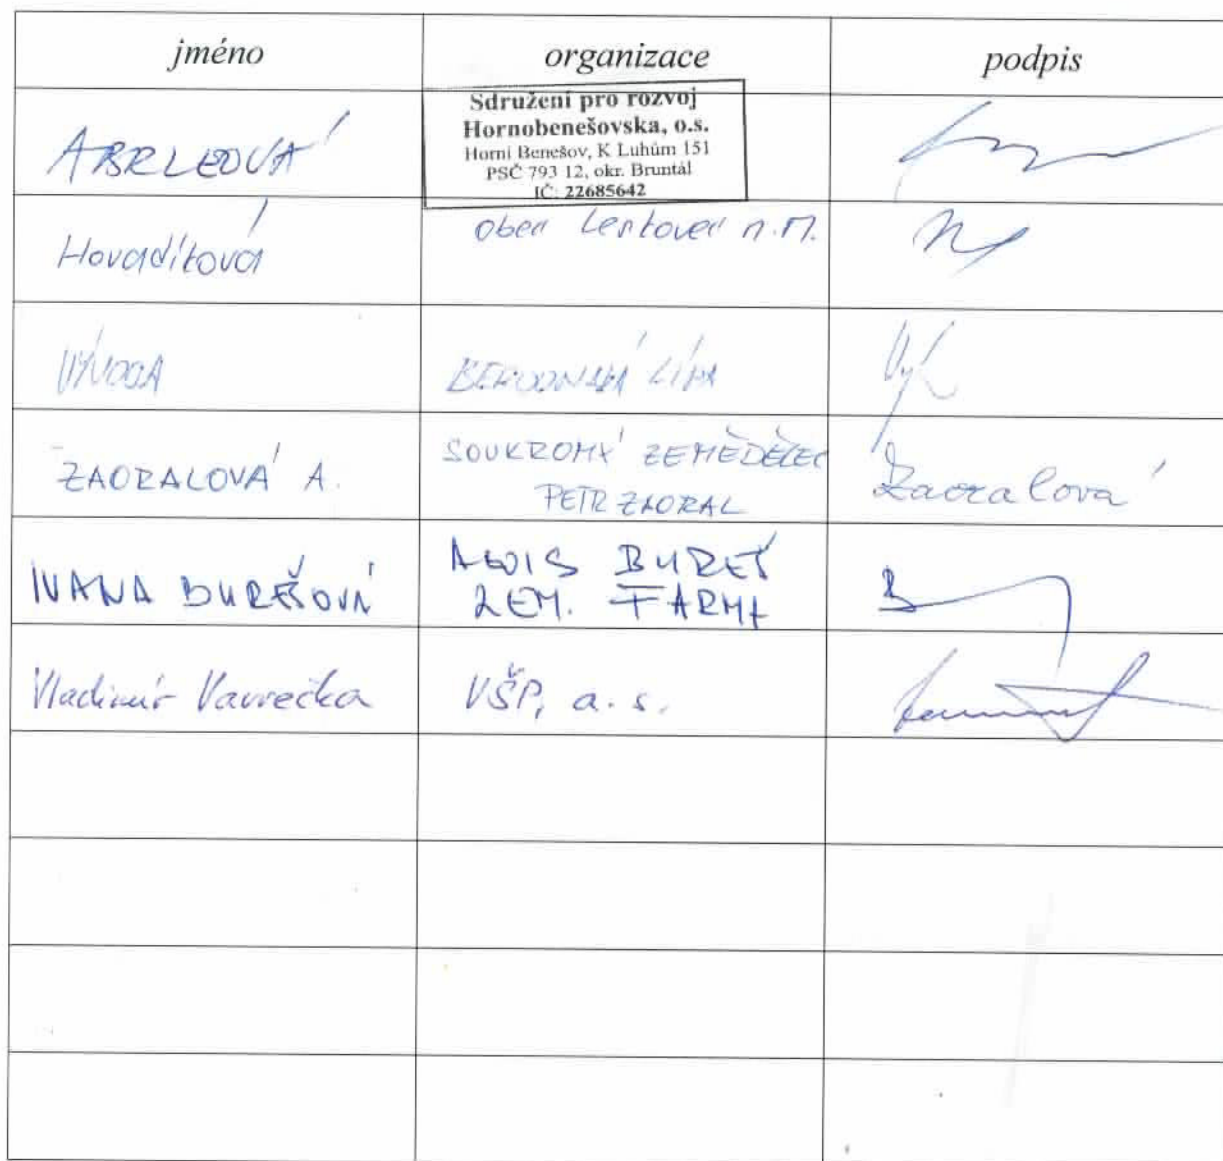 jméno organizace podpis
Sdružení pro rozvoj
Hornobenešovska, o.s.
Horní Benešov, K Luhům 151
PSČ 793 12, okr. Bruntál
IČ: 22685642
Hovadíková Obec n.M.
VÝVODA LÍPA
ZAORALOVÁ A.
SOUKROMÝ ZEMĚDĚLEC
PETR ZAORAL
Zaoralová
IVANA BUREŠOVÁ
ALOIS BUREŠ
ZEM. FARMA
Vladimír Vavrečka VŠP, a.s.